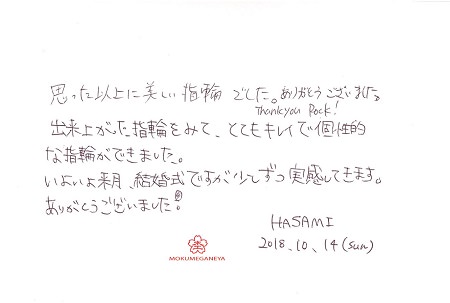 思った以上に美しい指輪でした。ありがとうございました。
Thankyou Rock!
出来上がった指輪をみて、とてもキレイで個性的
な指輪ができました。
いよいよ来月、結婚式ですが少しずつ実感してきます。
ありがとうございました!
HASAMI
2018.10.14(sun)
MOKUMEGANEYA